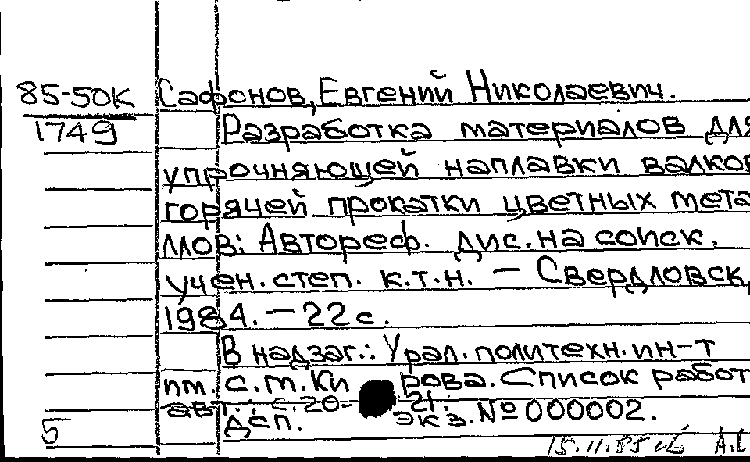 85-50К Сафонов, Евгений Николаевич.
1749 Разработка материалов для
упрочняющей наплавки валков
горячей прокатки цветных мета-
ллов: Автореф. дис. на соиск.
учен. степ. к.т.н. — Свердловск,
1984. — 22 с.
В надзаг.: Урал. политехн. ин-т
им. С.М. Кирова. Список работ
авт.: с. 20-21.
5 Дсп. Экз. № 000002.
15.11.85